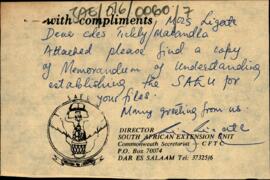 TAS/016/0060/7
with compliments
Maz Ligate
Dear cdes Tikly, Matandla
Attached please find a copy
of Memorandum of Understanding
establishing the SAEU for
your files.
Many greeting from us.
DIRECTOR
SOUTH AFRICAN EXTENSION UNIT
Commonwealth Secretariat - CFTC
P.O. Box 70074
DAR ES SALAAM Tel: 37325/6